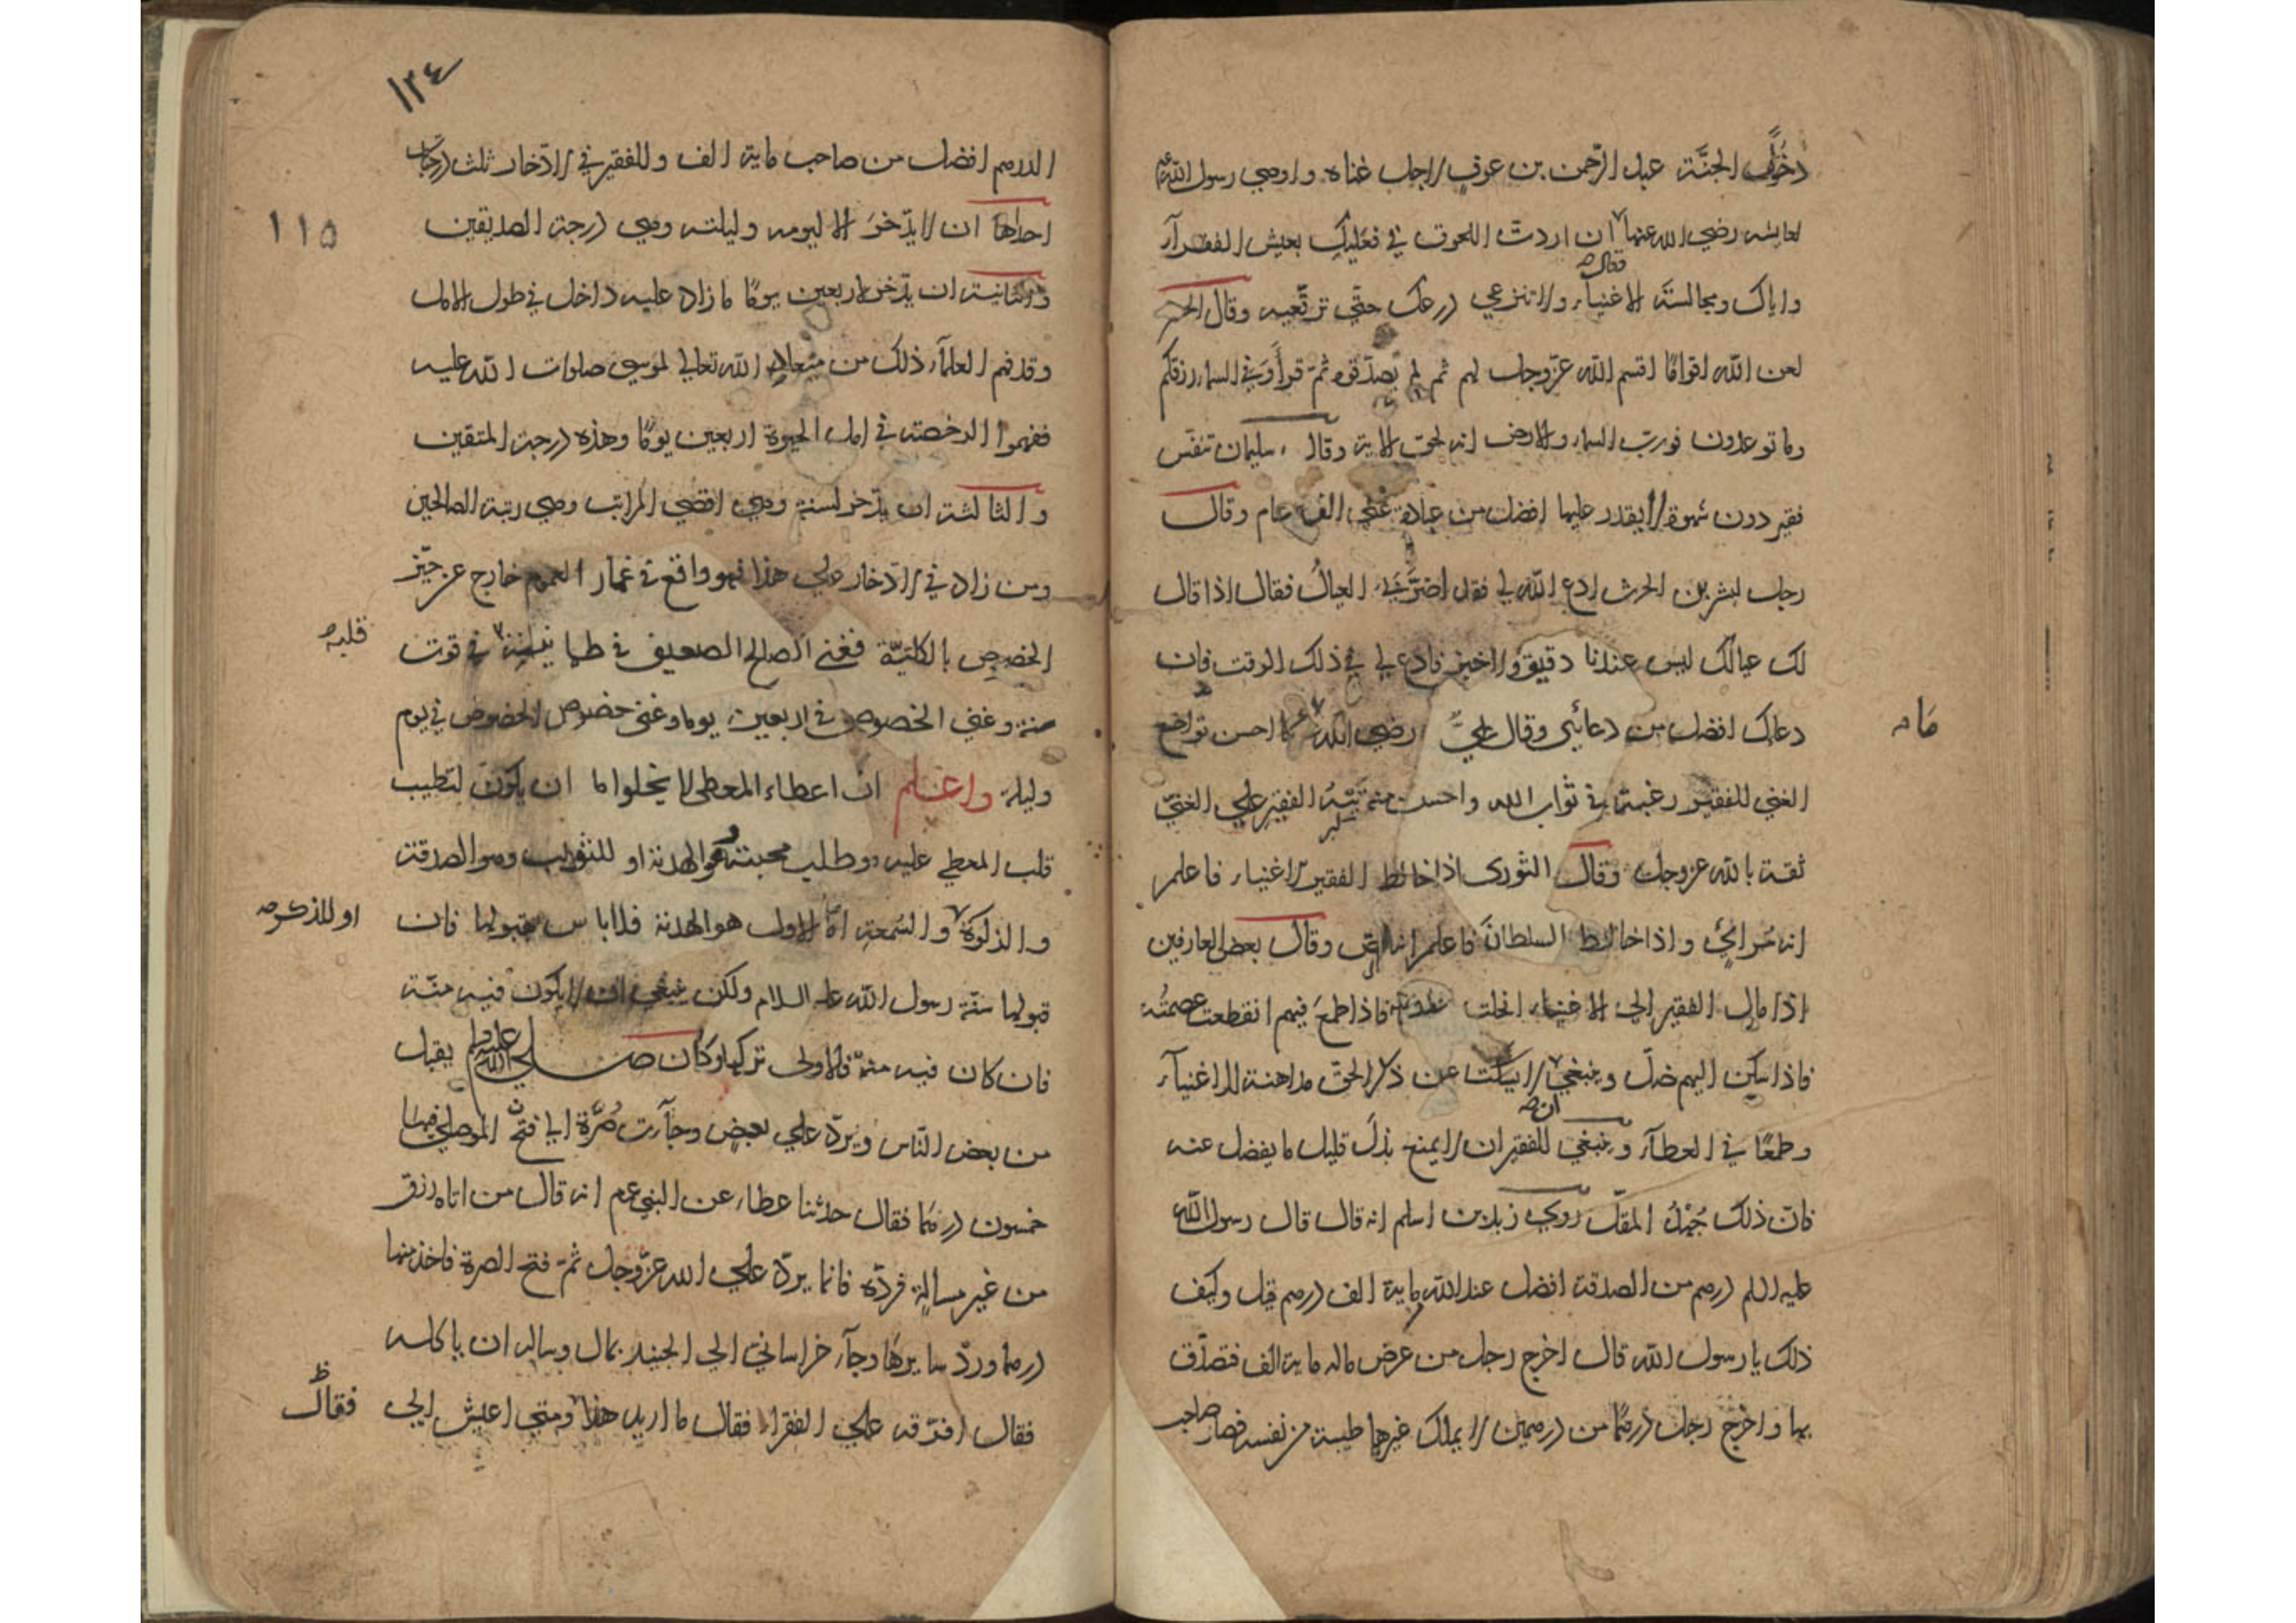 دخولا الجنّة عبد الرّحمن بن عوف لاجل غناه واوصي رسول الله عم
لعايشه رضي الله عنها ان اردت اللحوق بي فعليك بعيش الفقرآء
فقال
واياك ومجالسة الاغنياء ولا تنزعي درعك حتّي ترقّعيه وقال الحسن
لعن الله اقوامًا اقسم الله عزّوجل لهم ثم لم يصدّقوه ثمّ قرأ وَفي السماء رزقكم
وما توعدون فورب السماء والارض انه لحق الاية وقال سليمان تنفّس
فقير دون شهوة لا يقدر عليها افضل من عبادة غني الف عام وقال
رجل لبشر بن الحرث ادع الله لي فقد اضرّ بي العيالُ فقال اذا قال
لك عيالك ليس عندنا دقيق ولا خبز فادع لي في ذلك الوقت فان
دعاك افضل من دعائي وقال عليّ رضي الله عنه ما احسن تواضع
ما
الغني للفقير رغبة في ثواب الله واحسن منه تيهُ الفقير علي الغنيّ
ثقة بالله عزوجل وقال الثوري اذا خالط الفقير الاغنياء فاعلم
انه مُرائي واذا خالط السلطانَ فاعلم انه لصّ وقال بعض العارفين
اذا مال الفقير الي الاغنياء انحلت عروته فاذا طمعَ فيهم انقطعت عصمتُه
فاذا سكن اليهم ضلّ وينبغي لا يسكت عن ذكر الحقّ مداهنة للاغنيآء
ان
وطمعًا في العطآء وينبغي للفقير ان لا يمنع بذلَ قليل ما يفضل عنه
فانّ ذلك جُهْدُ المقلّ روي زيد بن اسلم انه قال قال رسول الله
عليه السلم درهم من الصدقة افضل عند الله ماية الف درهم قيل وكيف
ذلك يا رسول الله قال اخرج رجل من عرض ماله ماية الف فتصدّق
بها واخرج رجل درهمًا من درهمين لا يملك غيرهما طيبة من نفسه فصار صاحب
١٣٤
الدرهم افضل من صاحب ماية الف وللفقير في الادّخار ثلث درجات
١١٥
احداها ان لا يدّخرَ الا ليومه وليلته وهي درجة الصديقين
والثانية ان يدّخر لاربعين يومًا ما زاد عليه داخل في طول الامل
وقد فهم العلمآء ذلك من ميعاد الله تعالي لموسي صلوات الله عليه
ففهموا الرخصة في امل الحيوة اربعين يومًا وهذه درجة المتقين
والثالثة ان يدّخر لسنة وهي اقصي المراتب وهي رتبة الصالحين
ومن زاد في الادّخار علي هذا فهو واقع في غمار العموم خارج عن حيّز
الخصوص بالكليّة فغني الصالح الضعيف في طمانينة في قوت
قلبه
سنة وغني الخصوص في اربعين يوما وغني خصوص الخصوص في يوم
وليلة واعلم ان اعطاء المعطي لا يخلوا ما ان يكون لتطييب
قلب المعطي عليه وطلب محبته وهو الهدية او للثواب وهو الصدقة
والزكوة والسّمعة امّا الاول هو الهدية فلا باس بقبولها فان
او للذكر
قبولها سنّة رسول الله عليه السلام ولكن ينبغي ان لا يكون فيه منّة
فان كان فيه منّة فالاولي تركها وكان صلي الله عليه وسلم يقبل
من بعض النّاس ويردّ علي بعض وجآءت صُرّة الي فتح الموصلي فيها
خمسون درهمًا فقال حدثنا عطاء عن النبي عم انه قال من اتاه رزق
من غير مسالةٍ فردّه فانما يردّ علي الله عزّوجل ثمّ فتح الصرة فاخذ منها
درهما وردّ سايرها وجآء خراساني الي الجنيد بمال وساله ان ياكله
فقال افرّقه علي الفقراء فقال ما اريد هذا ومتي اعيش الي
فقال